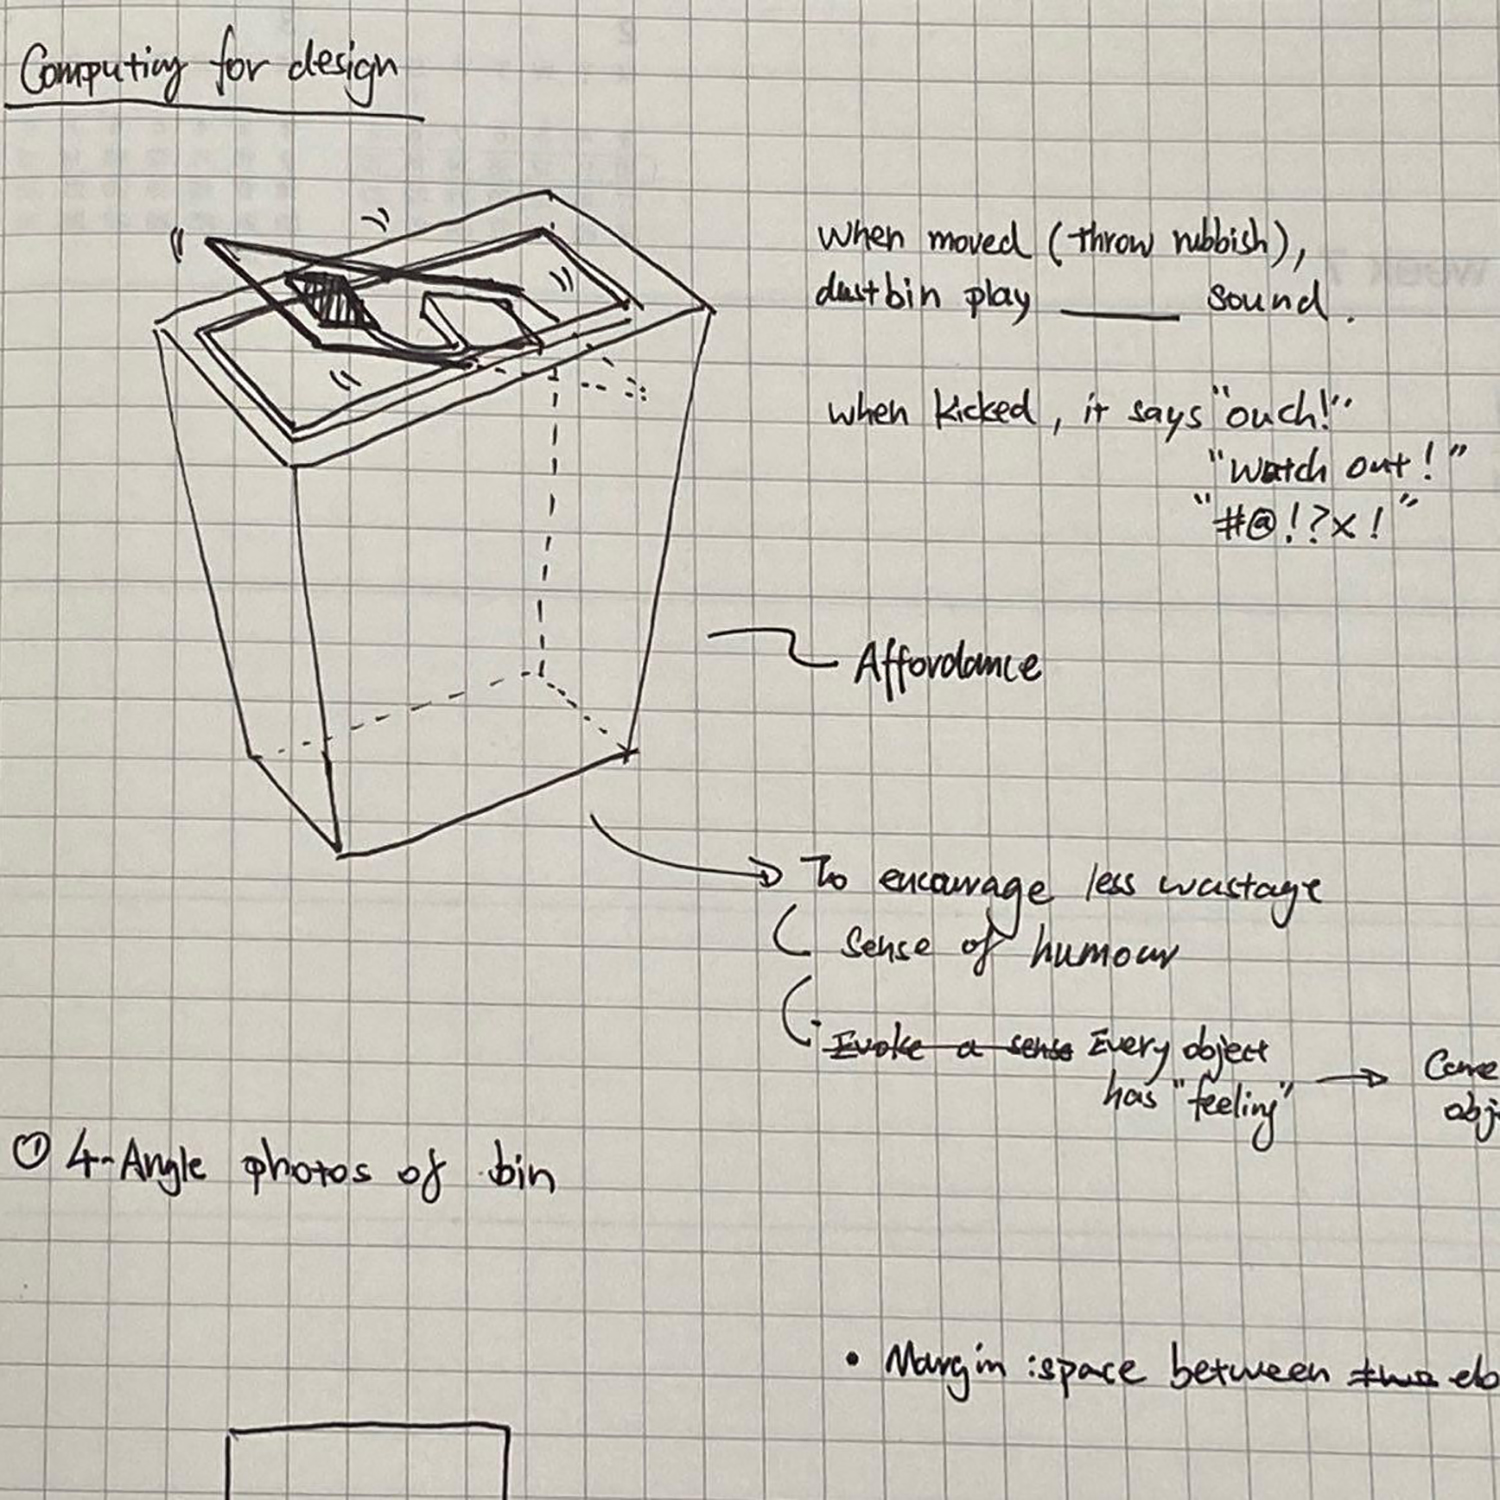 Computing for design
when moved (throw rubbish),
dustbin play ______ sound.
when kicked, it says "ouch!"
"watch out!"
"#@!?x!"
Affordance
To encourage less wastage
sense of humour
Evoke a sense Every object
has "feeling" → Care
obj
① 4-Angle photos of bin
• Margin : space between two